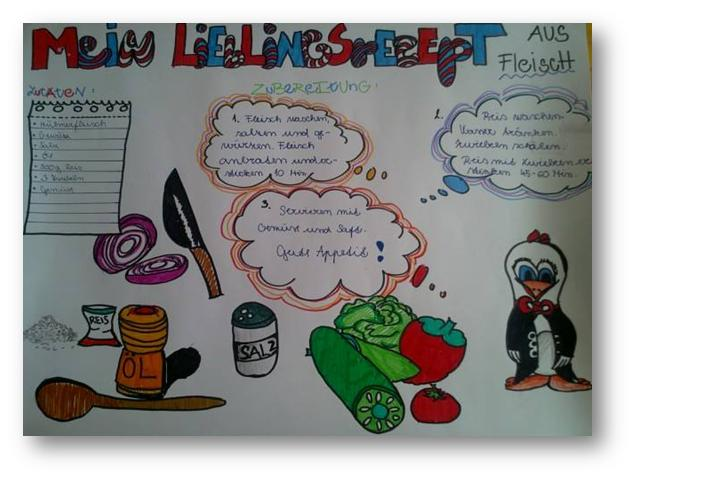 Mein Lieblingsrezept
AUS
Fleisch
Zutaten:
• Hühnerfleisch
• Gewürz
• Salz
• Öl
• 500g Reis
• 3 Zwiebeln
• Gemüse
Zubereitung:
1. Fleisch waschen,
salzen und ge-
würzen. Fleisch
anbraten und er-
sticken 10 Min.
2. Reis waschen.
Wasser
Zwiebeln schälen.
Reis mit Zwiebeln er
sticken 45-60 Min.
3. Servieren mit
Gemüse und Saft.
Guten Appetit!
REIS
ÖL
SALZ